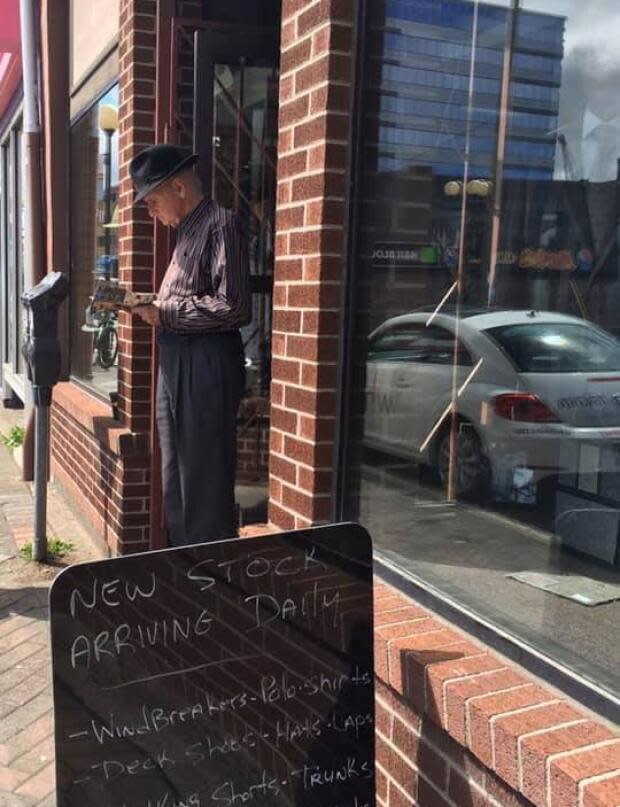 NEW STOCK
ARRIVING DAILY
- WindBreakers - Polo - Shirts
- Deck Shoes - Hats - Caps
Shorts - TRUNKS